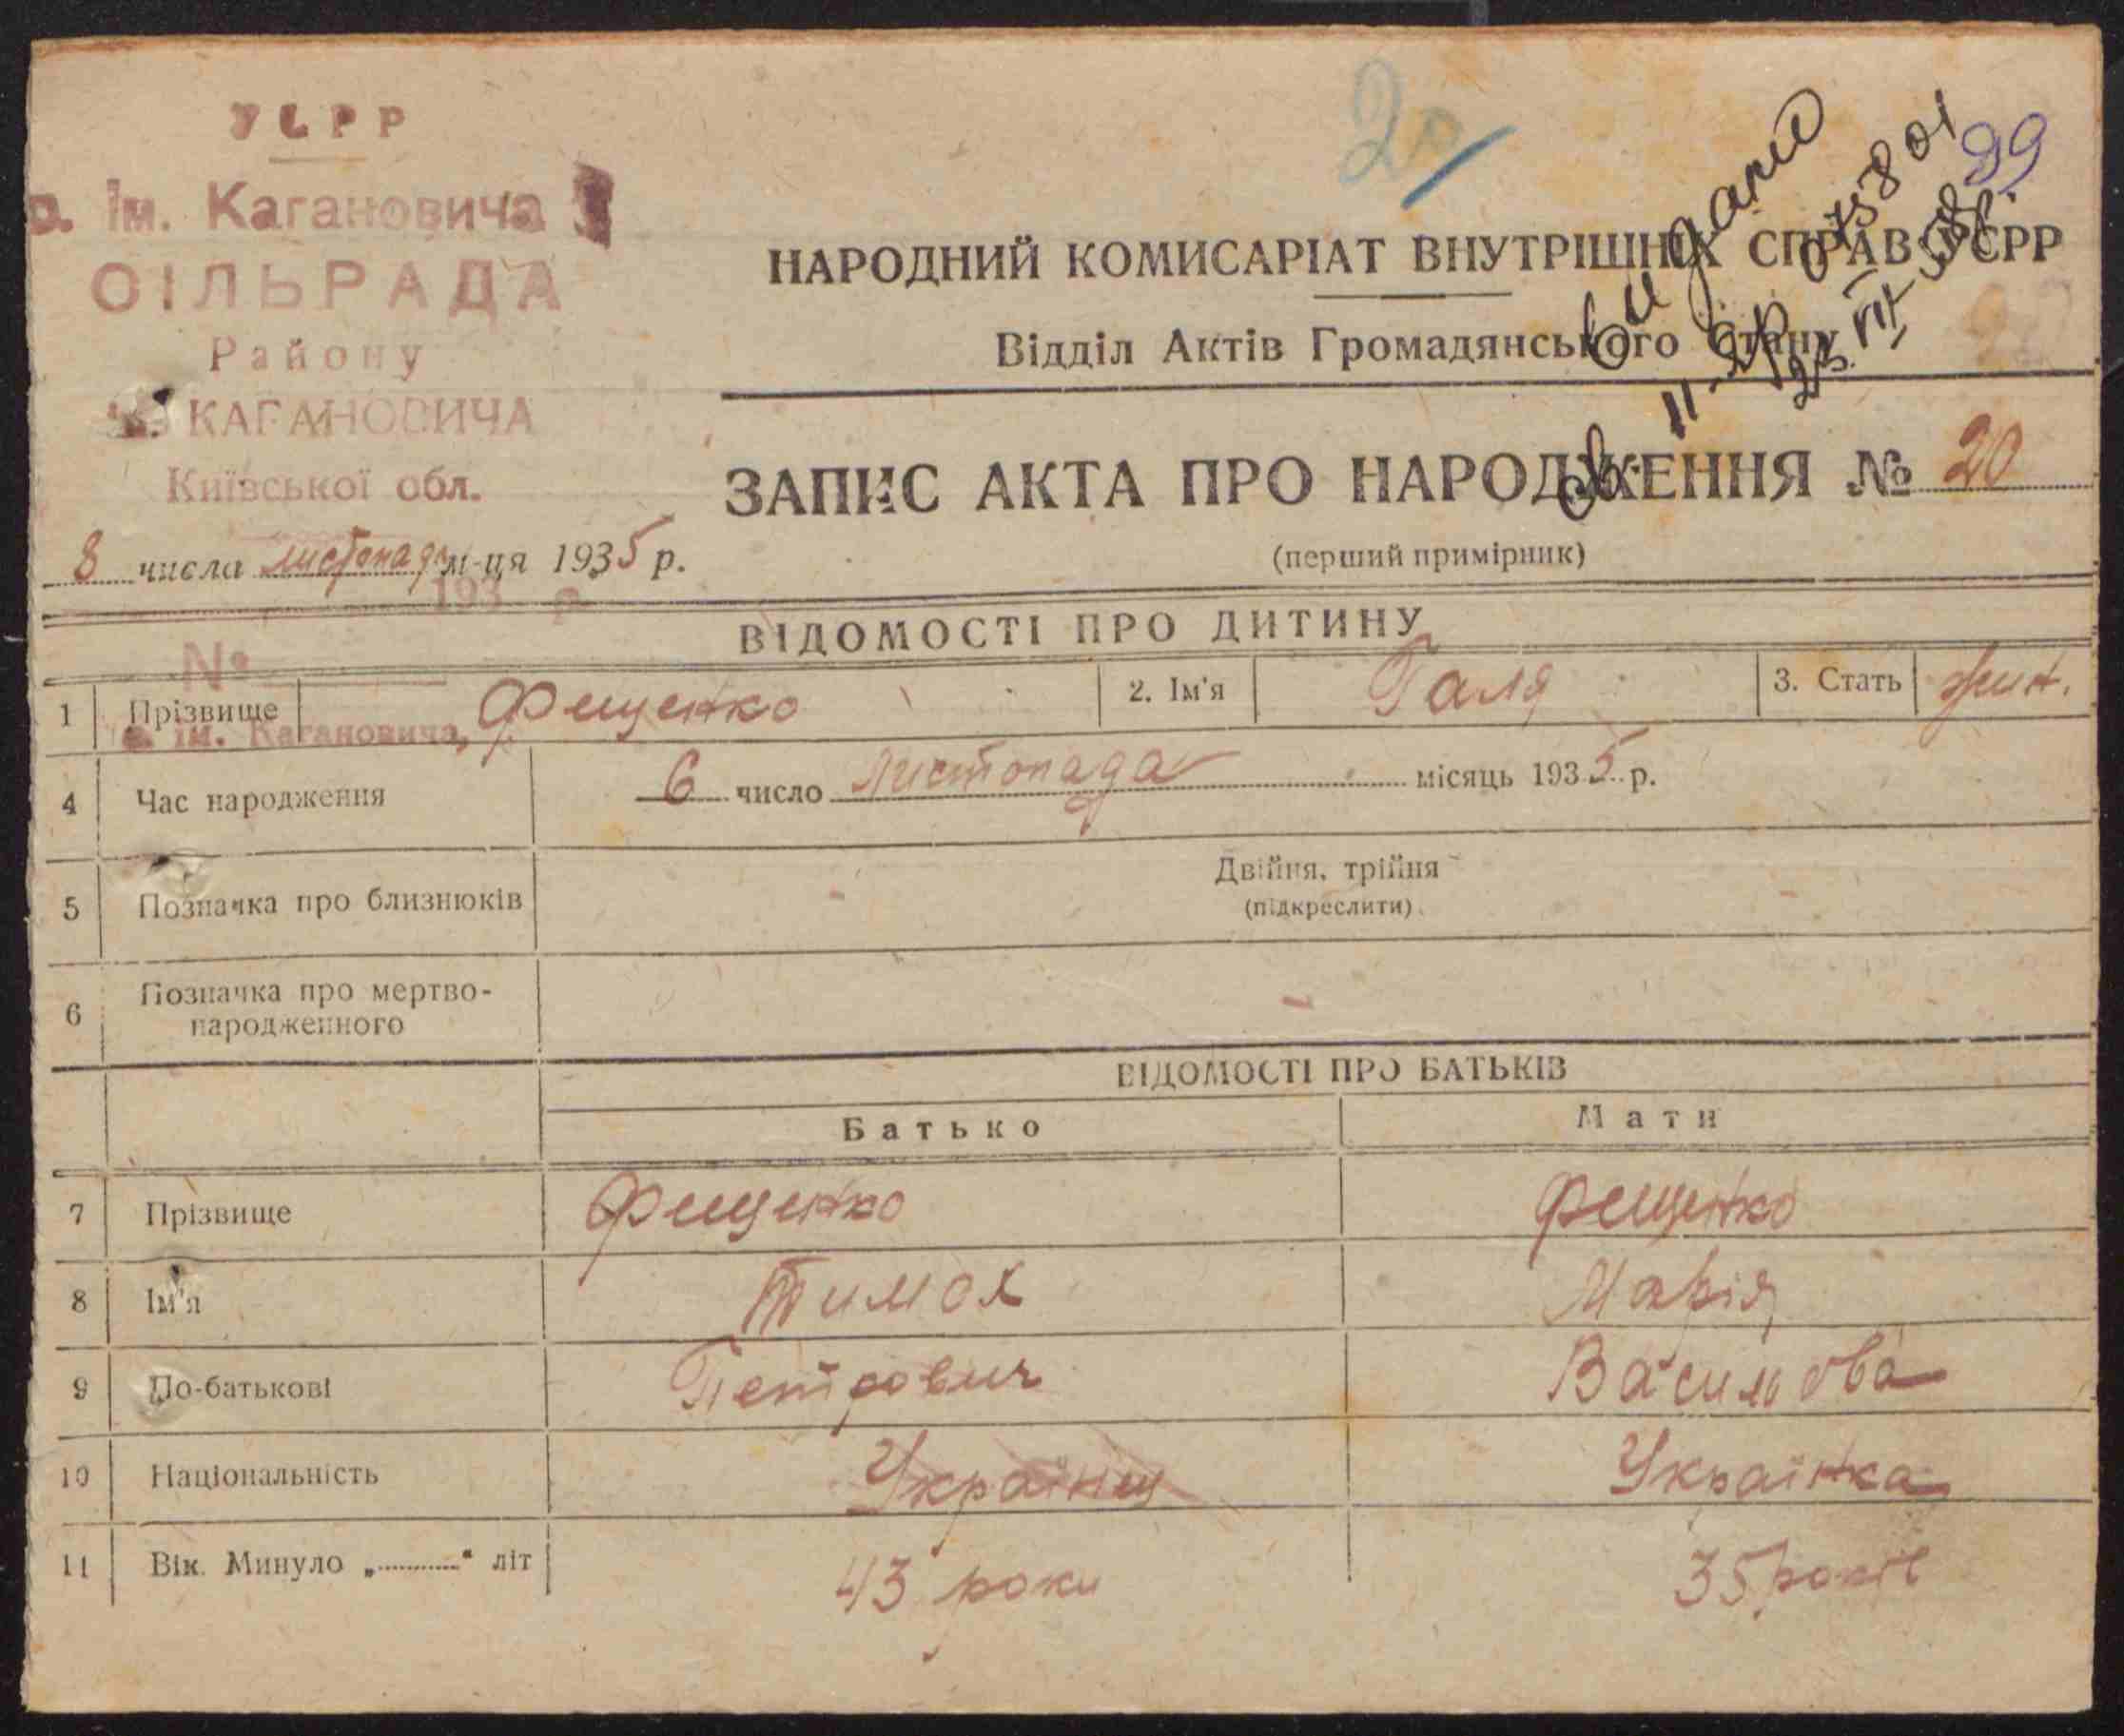 УСРР
с. Ім. Кагановича
СІЛЬРАДА
Району
КАГАНОВИЧА
Київської обл.
8 числа листопада м-ця 1935 р.
193 р.
№
с. Ім. Кагановича,
20
99
видано
НАРОДНИЙ КОМИСАРІАТ ВНУТРІШНІХ СПРАВ УСРР
Відділ Актів Громадянського Стану
ЗАПИС АКТА ПРО НАРОДЖЕННЯ № 20
(перший примірник)
ВІДОМОСТІ ПРО ДИТИНУ
1 Прізвище Фещенко 2. Ім'я Галя 3. Стать жін.
4 Час народження 6 число листопада місяць 1935 р.
5 Позначка про близнюків Двійня, трійня
(підкреслити)
6 Позначка про мертво-
народженного
ВІДОМОСТІ ПРО БАТЬКІВ
Батько Мати
7 Прізвище Фещенко Фещенко
8 Ім'я Тимох Марія
9 По-батькові Петрович Василова
10 Національність Українец Українка
11 Вік. Минуло „..........“ літ 43 роки 35 років